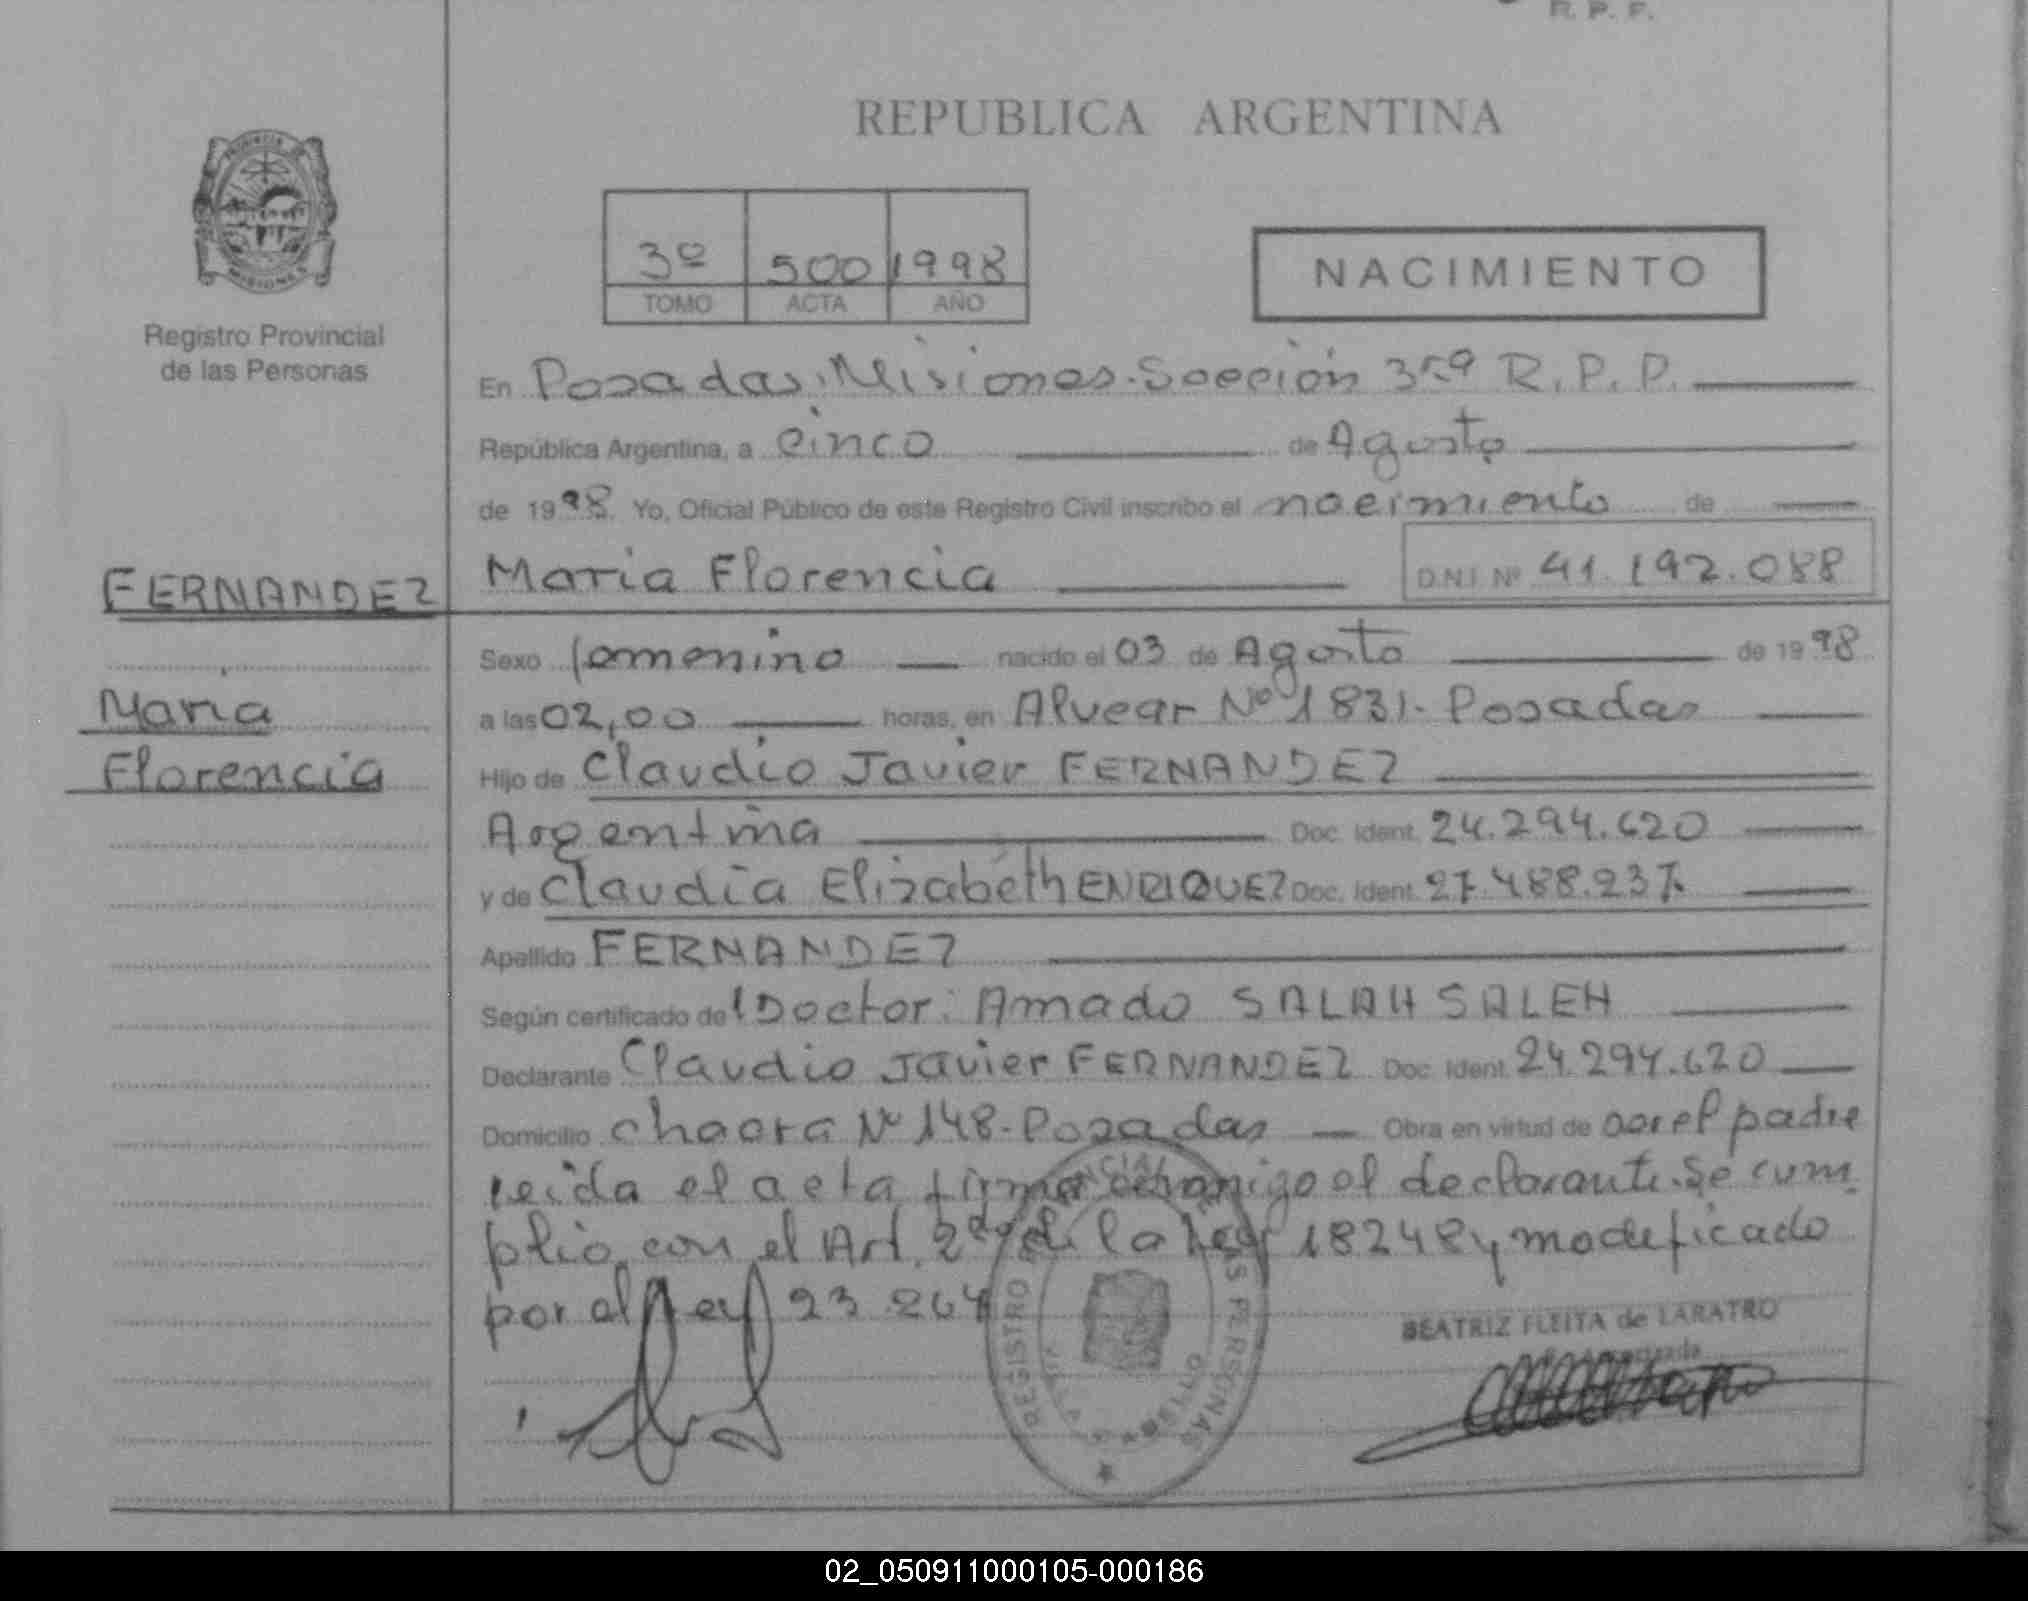 R. P. P.
REPUBLICA ARGENTINA
PROVINCIA DE MISIONES
Registro Provincial
de las Personas
3º 500 1998
TOMO ACTA AÑO
NACIMIENTO
En Posadas, Misiones. Sección 35ª R.P.P.
República Argentina, a cinco de Agosto
de 1998. Yo, Oficial Público de este Registro Civil inscribo el nacimiento de
FERNANDEZ
María
Florencia
María Florencia D.N.I. Nº 41.192.088
Sexo femenino nacido el 03 de Agosto de 1998
a las 02,00 horas, en Alvear Nº 1831. Posadas
Hijo de Claudio Javier FERNANDEZ
Argentina Doc. Ident. 24.294.620
y de Claudia Elizabeth ENRIQUEZ Doc. Ident. 27.488.237
Apellido FERNANDEZ
Según certificado del Doctor: Amado SALAH SALEH
Declarante Claudio Javier FERNANDEZ Doc. Ident. 24.294.620
Domicilio chacra Nº 148. Posadas Obra en virtud de ser el padre
leida el acta firma conmigo el declarante. Se cum
plio con el Art. 2do de la Ley 18248 y modificado
por el Ley 23.264
REGISTRO PROVINCIAL DE LAS PERSONAS
BEATRIZ FLEITA de LARATRO
02_050911000105-000186